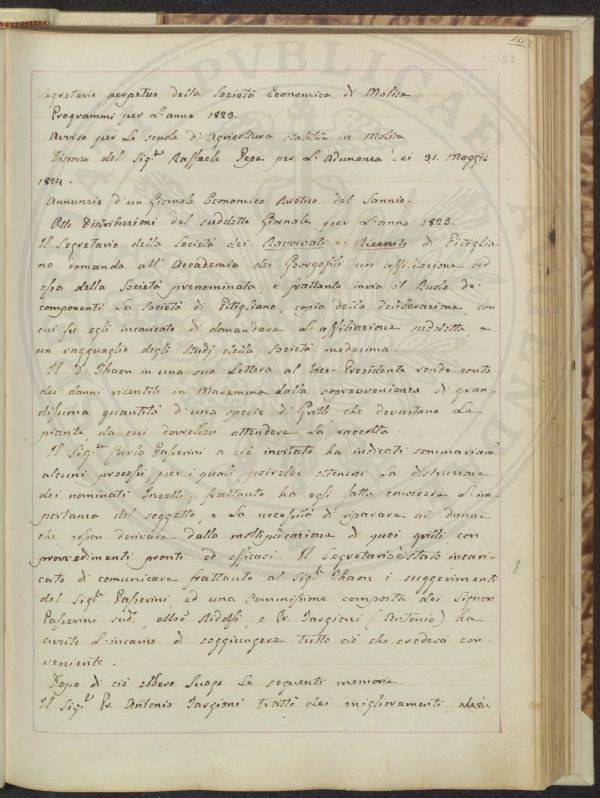 1823
92
Segretario perpetuo della Società Economica di Molise
Programmi per l'anno 1823.
Avviso per le scuole d'Agricoltura stabilite in Molise
Discorso del Sig.r Raffaele Pepe per l'Adunanza dei 31. Maggio
1824.
Annunzio d'un Giornale Economico Rustico del Sannio.
Otto Distribuzioni del suddetto Giornale per l'anno 1823.
Il Segretario della Società dei Ravvivati Riuniti di Pitiglia-
no domanda all'Accademia dei Georgofili un'affiliazione ad
essa della Società prenominata, e frattanto invia il Ruolo de'
componenti la Società di Pitigliano, copia della deliberazione, con
cui fu egli incaricato di domandare l'affiliazione suddetta, e
un ragguaglio degli Studj della Società medesima.
Il D. Thaon in una sua Lettera al Vice-Presidente rende conto
dei danni risentiti in Maremma dalla sopravvenienza di gran-
dissima quantità d'una specie di Grilli, che devastano le
piante, da cui dovrebbesi attendere la raccolta.
Il Sig.r Carlo Passerini a ciò invitato ha indicati sommariam.
alcuni processi, per i quali potrebbe ottenersi la distruzione
dei nominati Insetti, frattanto ha egli fatto conoscere l'im-
portanza del soggetto, e la necessità di riparare ai danni
che posson derivare dalla moltiplicazione di quei grilli con
provvedimenti pronti ed efficaci. Il Segretario è stato incari-
cato di comunicare frattanto al Sig.r Thaon i suggerimenti
del Sig.r Passerini, ed una Commissione composta dei Signori
Passerini sud., Ridolfi, e Pr. Targioni (Antonio) ha
avuto l'incarico di soggiungere tutto ciò che crederà con-
veniente.
Dopo di ciò ebbero luogo le seguenti memorie.
Il Sig.r Pr. Antonio Targioni trattò dei miglioramenti,